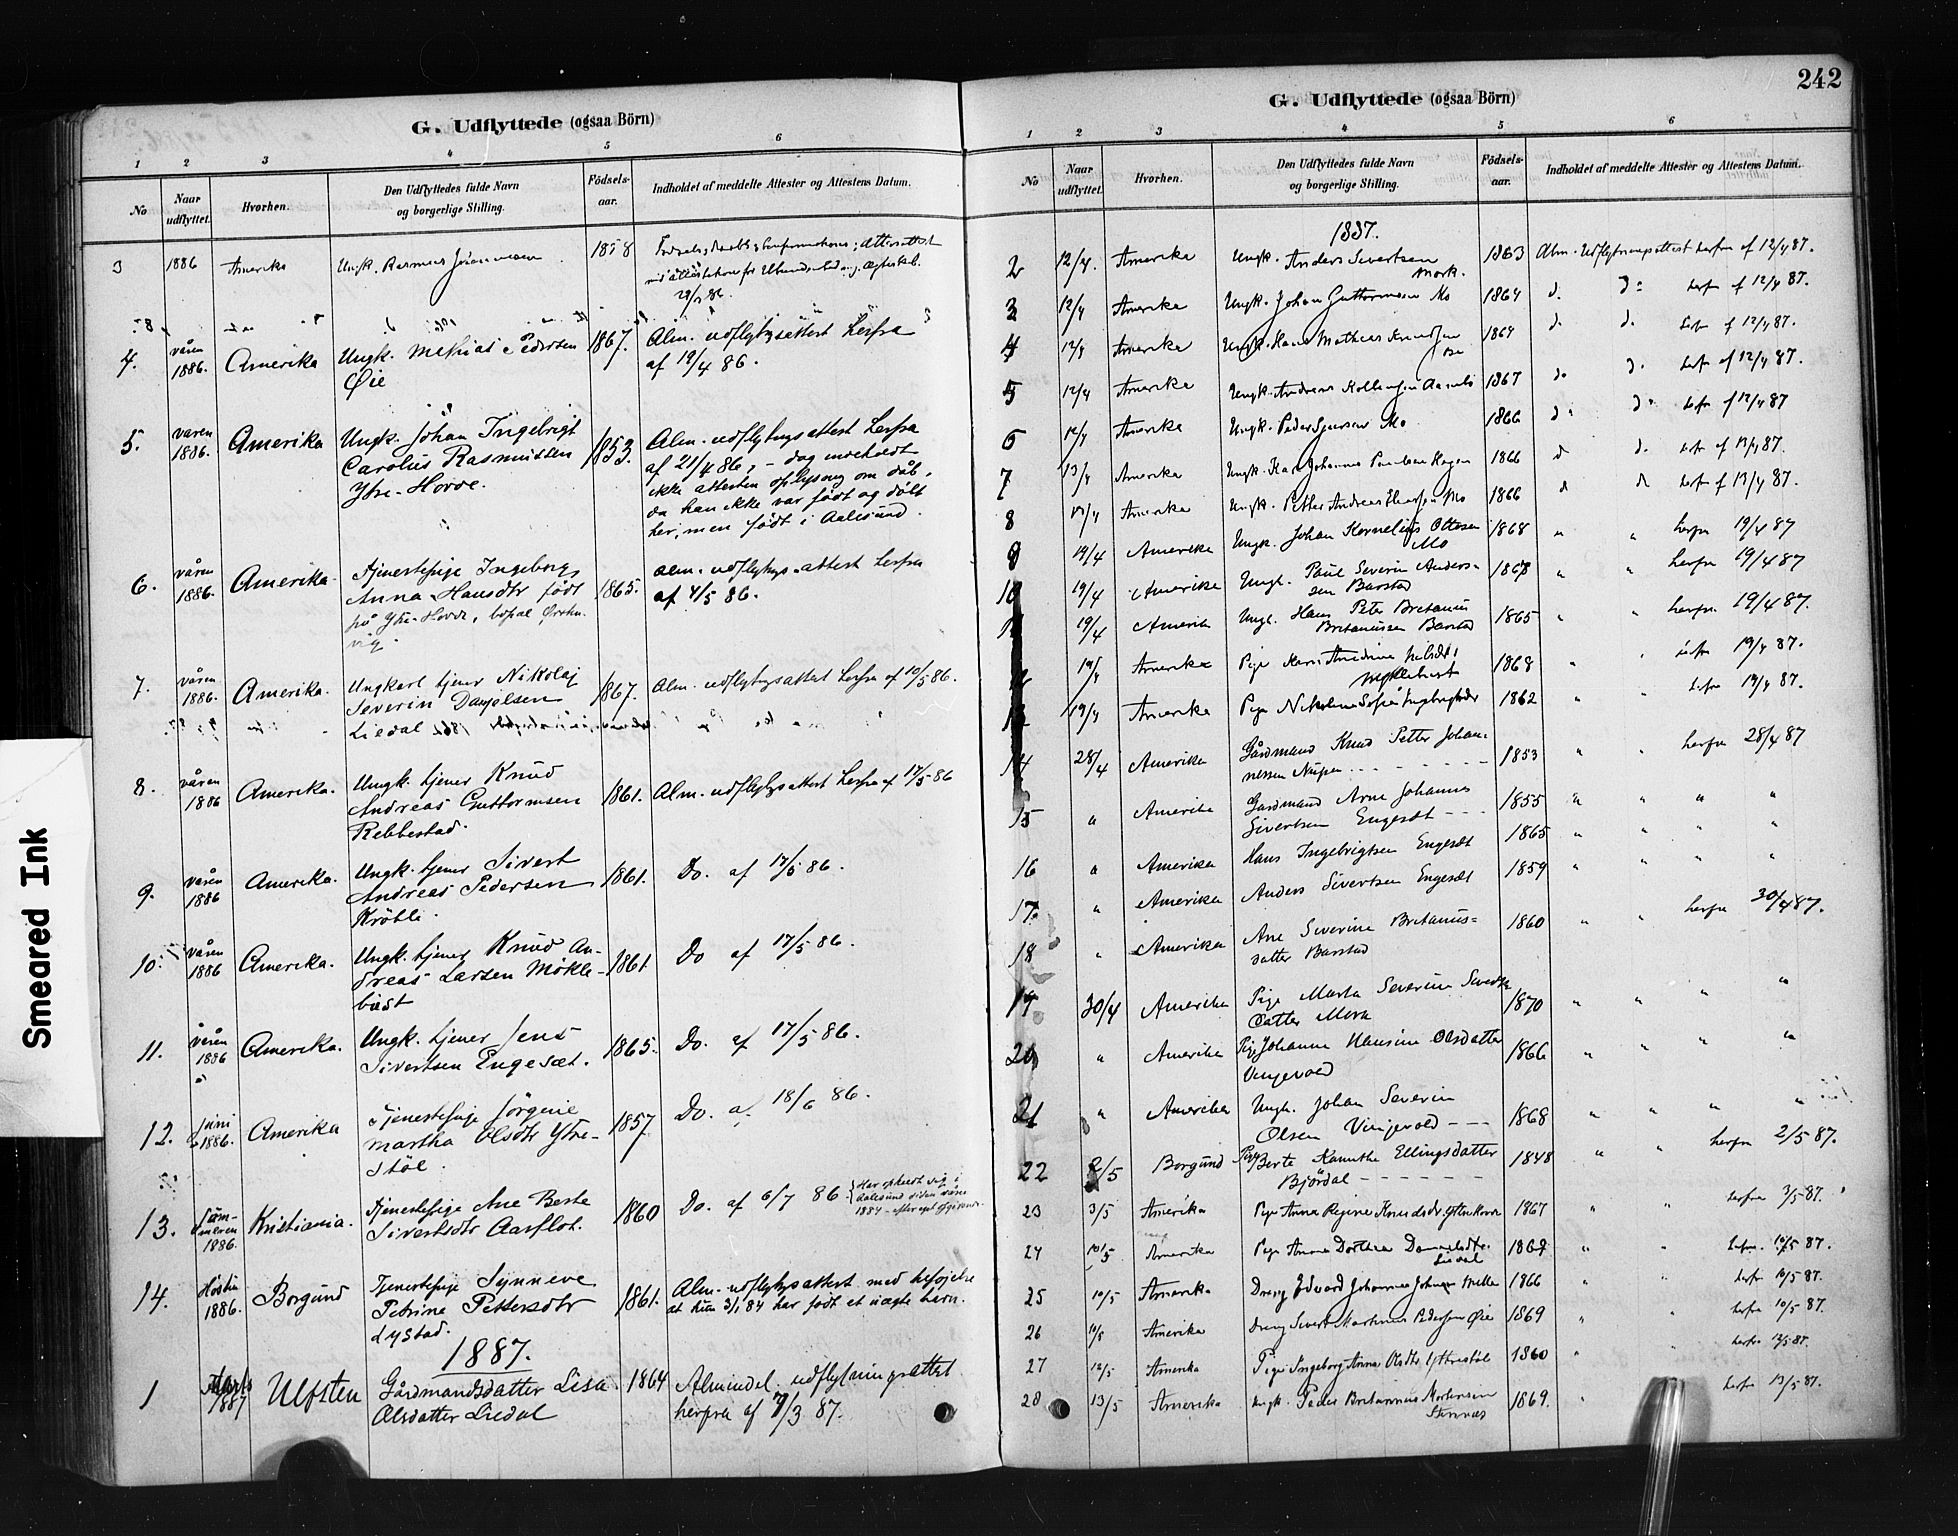 242
Smeared Ink
G. Udflyttede (ogsaa Börn)
1 2 3 4 5 6
No Naar udflyttet. Hvorhen. Den Udflyttedes fulde Navn og borgerlige Stilling. Födsels-aar. Indholdet af meddelte Attester og Attestens Datum.
3 1886 Amerika Ungk. Rasmus 1858
29/3 86.
4. våren 1886. Amerika Ungk. Mathias Pedersen 1867. Alm. udflytngsattest herfra
Øie af 19/4 86.
5. våren 1886. Amerika Ungk. Johan Ingebrigt 1853. Alm. udflytngsattest herfra
Carolus Rasmussen af 21/4 86, - dog indeholdt
Ytre-Hovde. ikke attesten oplysning om dåb,
da han ikke var født og døbt
her, men født i Aalesund.
6. våren 1886. Amerika. Tjenestepige Ingeborg 1865. Alm. udflytngs-attest herfra
Anna Hansdtr født af 4/5 86.
på Ytre-Hovde, bopæl Ørsten-
vig.
7. våren 1886. Amerika. Ungkarl tjener Nikolaj 1867. Alm. udflytngsattest herfra af 10/5 86.
Severin Danjelsen
Liedal
8. våren 1886 Amerika. Ungk. tjener Knud 1861. Alm. udflytngsattest herfra af 17/5 86
Andreas Guttormsen
Rebbestad.
9. våren 1886 Amerika. Ungk. tjener Sivert 1861. Do. af 17/5 86.
Andreas Pedersen
Krøvli.
10. våren 1886 Amerika. Ungk. tjener Knud An- 1861. Do af 17/5 86.
dreas Larsen Møkle-
bust
11. våren 1886 Amerika. Ungk. tjener Jens 1865. Do. af 17/5 86.
Sivertsen Engesæt.
12. Juni 1886. Amerika Tjenestepige Jørgine 1857 Do. af 18/6 86.
Martha Olsdtr Ytre-
Støl.
13. Som-meren 1886. Kristiania. Tjenestepige Ane Berte 1860 Do. af 6/7 86 {Har opholdt sig i
Sivertsdtr Aarflot. Aalesund siden våren
1884 - efter eget opgivende.
14. Høsten 1886. Borgund Tjenestepige Synneve 1861. Alm. udflytngsattest med tilføjelse
Petrine Pettersdtr at hun 3/1 84 har født et uægte barn.
Lystad.
1887.
1 Marts 1887 Ulfsten Gårdmandsdatter Lisa 1864 Almindel. udflytningsattest
Olsdatter Liedal herfra af 7/3 87.
G. Udflyttede (ogsaa Börn)
1 2 3 4 5 6
No Naar udflyttet. Hvorhen. Den Udflyttedes fulde Navn og borgerlige Stilling. Födsels-aar. Indholdet af meddelte Attester og Attestens Datum.
1887.
2 12/4. Amerika Ungk. Anders Sivertsen 1863 Alm. Udflytningsattest herfra af 12/4 87.
Mork.
3 12/4 Amerika Ungk. Johan Guttormsen Mo 1864 d. do herfr af 12/4 87.
4 12/4 Amerika Ungk. Hans Mathias Knudsen 1864 do d. herfr af 12/4 87.
5 12/4 Amerika Ungk. Andreas 1867 do d. herfr af 12/4 87.
6 12/4 Amerika Ungk. Peder Mo 1866 d. d. herfr af 12/4 87
7 13/4 Amerika Ungk. Karl Johannes Hagen 1866 d d. herfr af 13/4 87.
8 13/4 Amerika Ungk. Petter Andreas Mo 1866 d d herfr af 13/4 87.
9 19/4 Amerika Ungk. Johan Kornelius Ottesen 1868 " " herfra 19/4 87
Mo
10 19/4 Amerika Ungk. Paul Severin Anders- 1868 " " herfra 19/4 87
sen Barstad
19/4 Amerika Ungk. Hans Peter Britanus 1865 " " herfra 19/4 87.
Britanussen Barstad
19/4 Amerika Pige Karn 1868 " herfra 19/4 87.
Myklebust
19/4 Amerika Pige Nikoline Sofie 1862 " herfra 19/4 87.
14 28/4 Amerika Gårdmand Knud Petter Johan- 1853 " " herfra 28/4 87
nessen
15 " Amerika Gårdmand Arne Johannes 1855 " " " "
Sivertsen Engesæt
16 " Amerika Hans Ingebrigtsen Engesæt 1865 " " " "
17. " Amerika Anders Sivertsen Engesæt 1859 " " " "
18 " Amerika Ane Severine Britanus- 1860 " " herfra 30/4 87.
datter Barstad
19 30/4 Amerika Pige Marta Severine 1870 " " " "
datter
20 " Amerika Pige Johanne Hansine Olsdatter 1866 " " " "
Vingevold
21 " Amerika Ungk. Johan Severin 1868 " " " "
Olsen Vingevold
22 2/5 Borgund Pige Berte Kanutte Ellingsdatter 1848 " " herfra 2/5 87.
Bjørdal
23 3/5 Amerika Pige Anna Regine Knudsdtr Ytre Hovde 1867 " " herfra 3/5 87.
24 10/5 Amerika Pige Anna Dorthea 186 " " herfra. 10/5 87.
Liedal
25 10/5 Amerika Dreng Edvard Johannes Johnsen 1866 " " herfr 10/5 87.
26 10/5 Amerika Dreng Sivert Martinus Pedersen Øie 1869 " " herfra 10/5 87.
27 12/5 Amerika Pige Ingeborg Anna Olsdtr Ytrestøl 1860 " " herfra 12/5 87.
28 13/5 Amerika Ungk. Peder Britannus Mortensen 1869. " herfra 13/5 87.